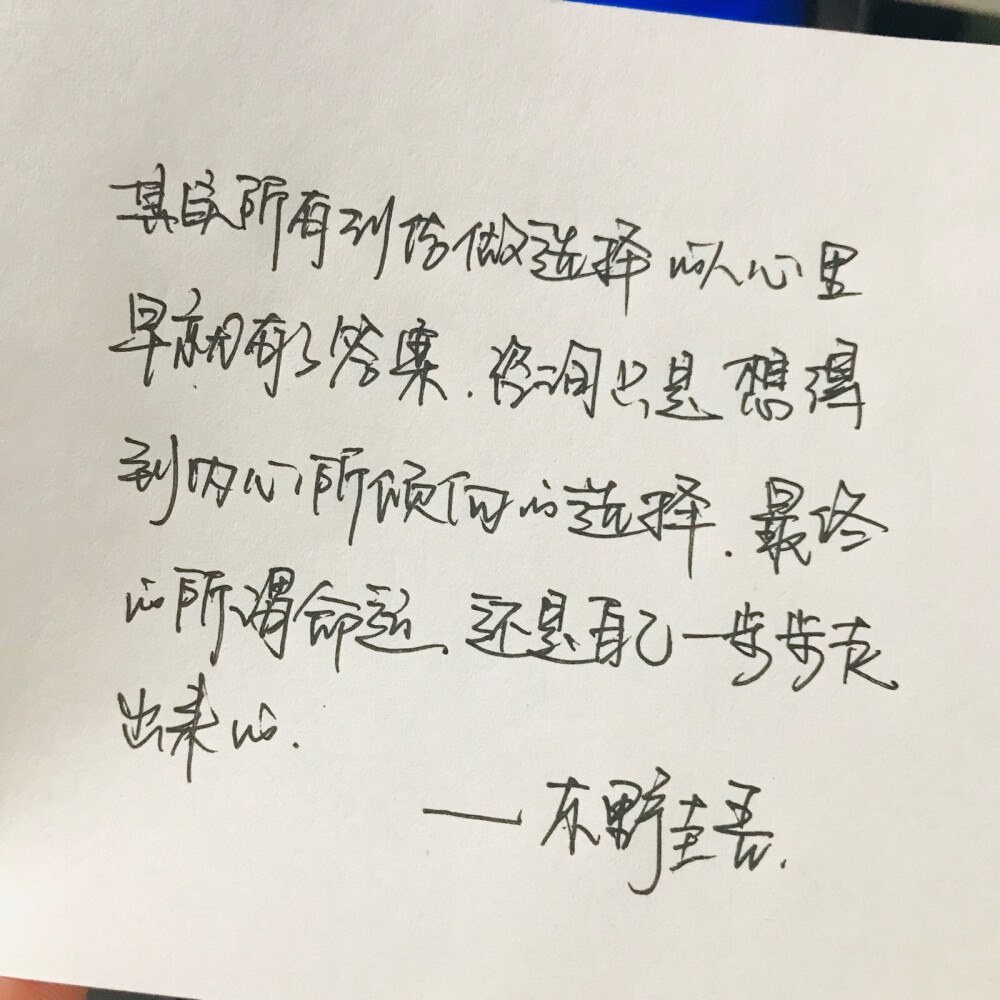 其实所有纠结做选择的人心里
早就有了答案.咨询只是想得
到内心所倾向的选择.最终
的所谓命运.还是自己一步步走
出来的.
——东野圭吾.